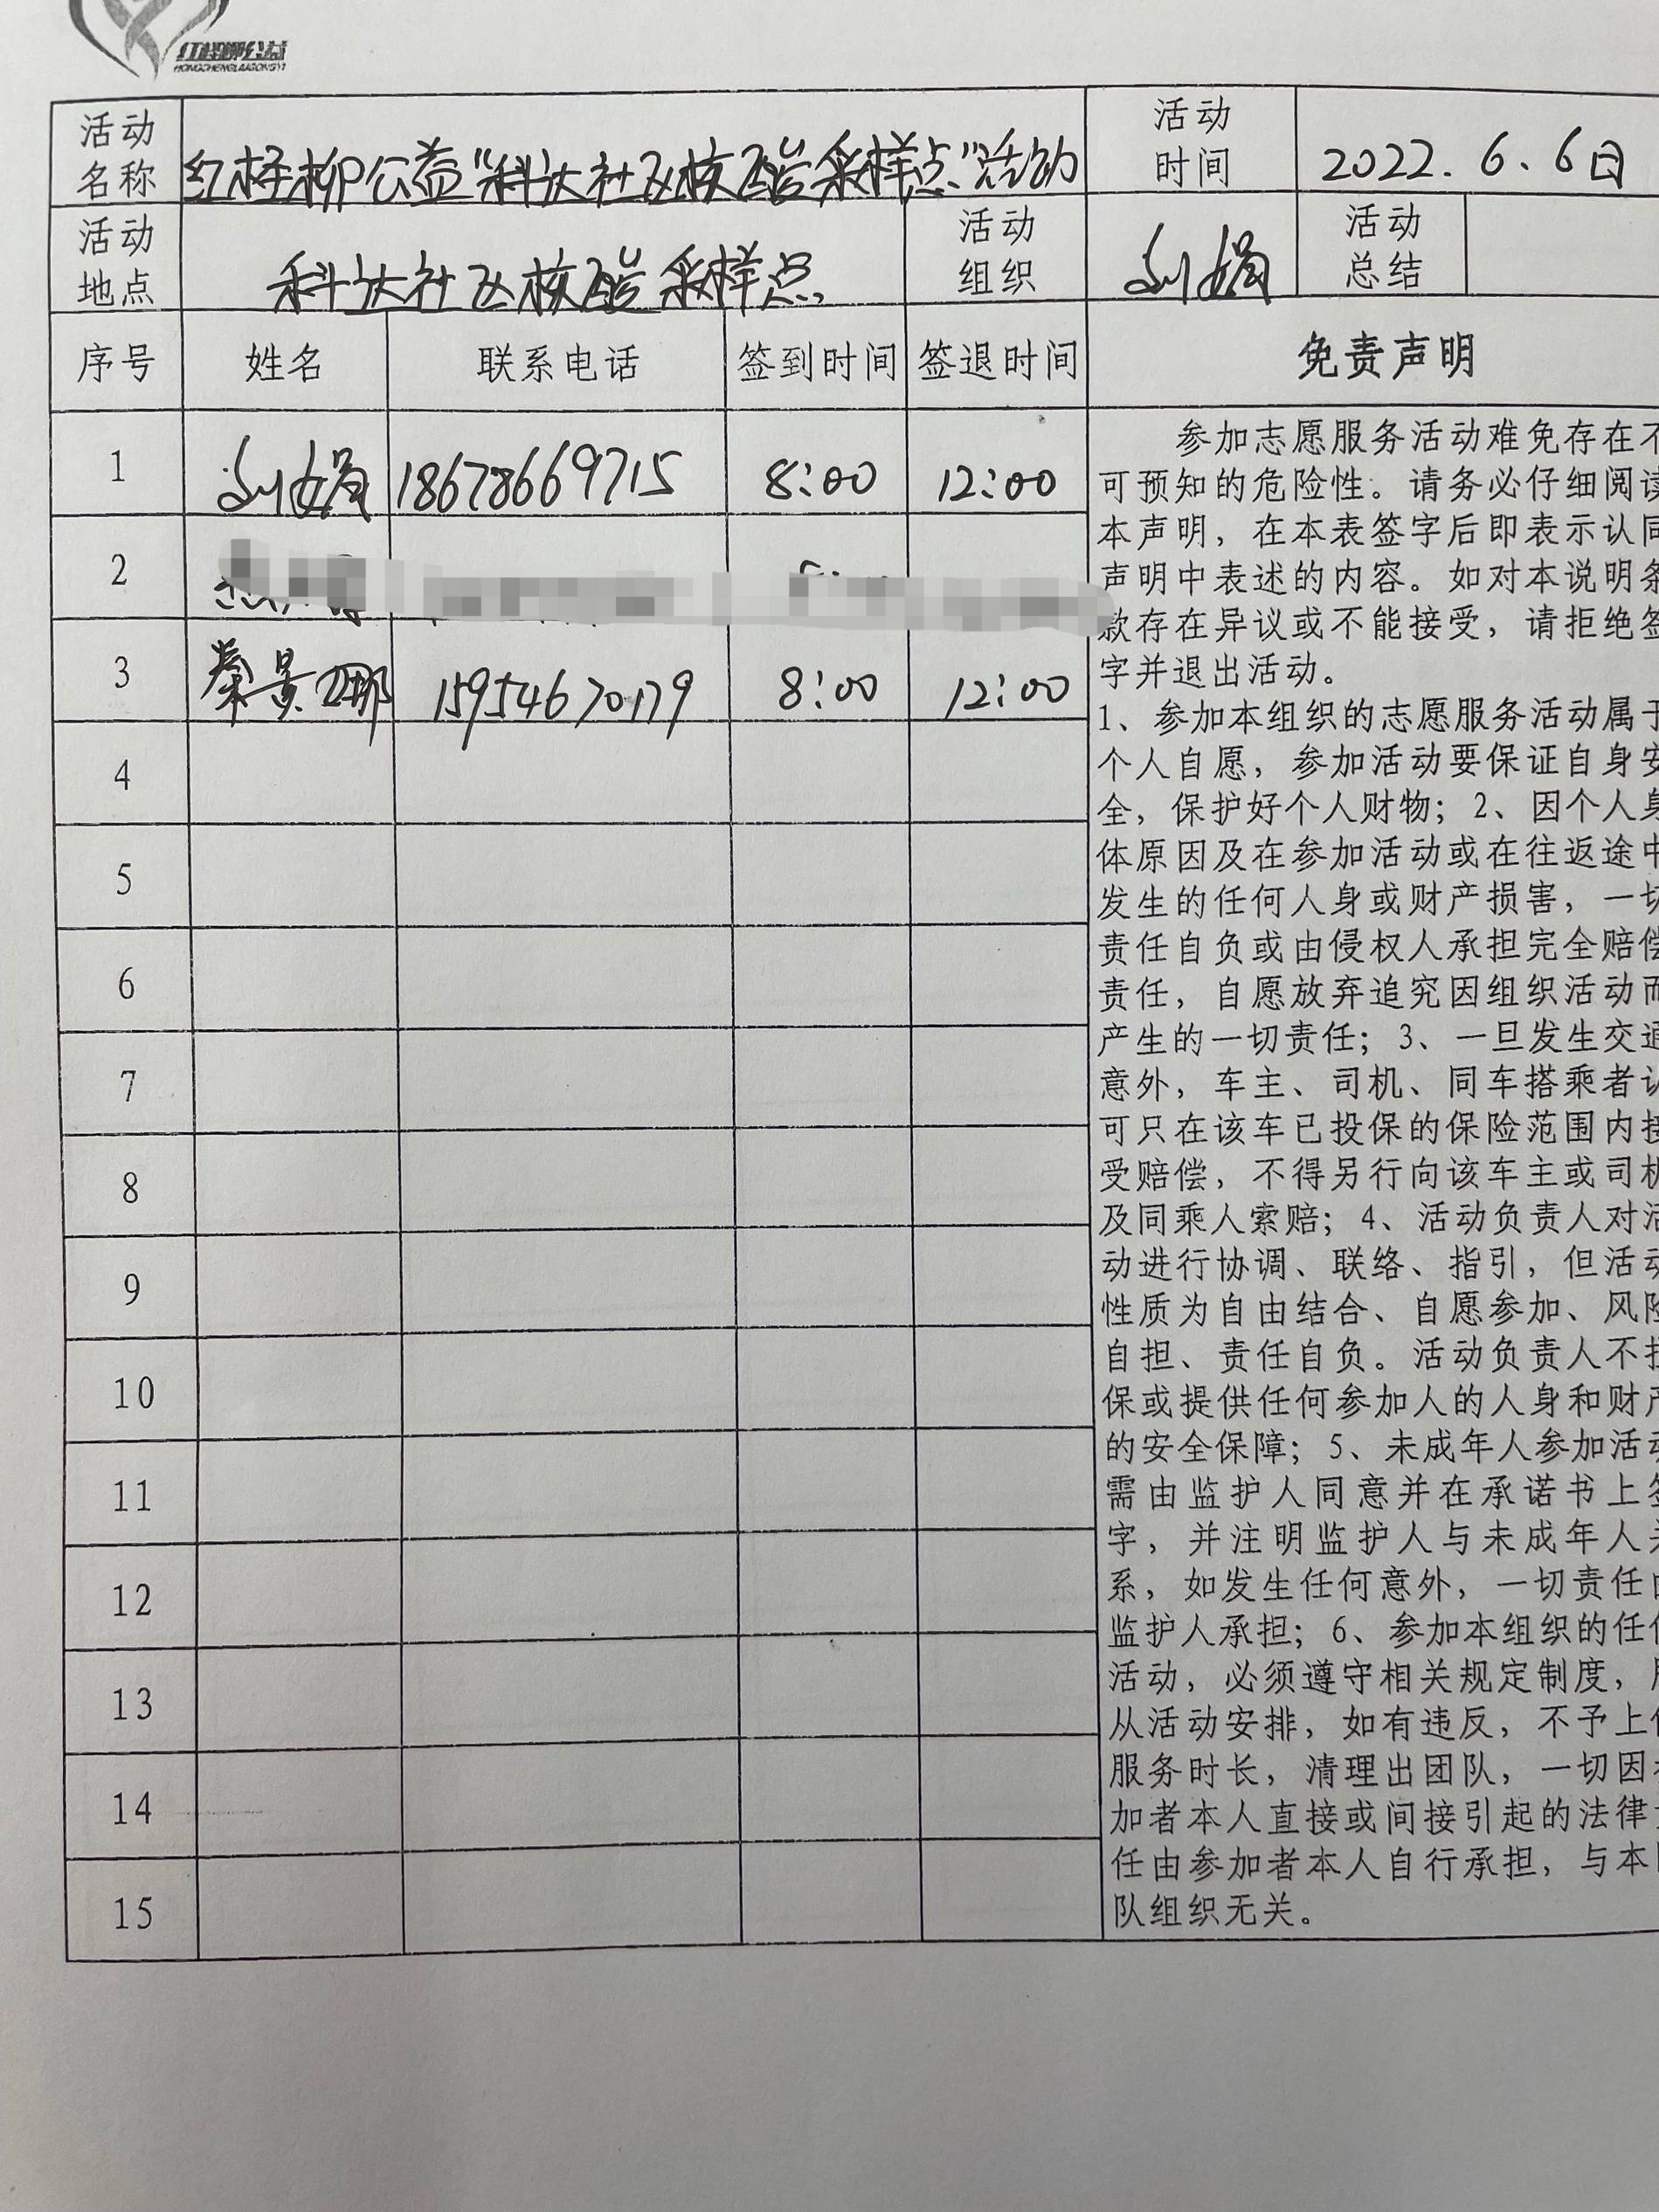 红柽柳公益
HONGCHENGLIUGONGYI
活动名称 红柽柳公益“科达社区核酸采样点”活动 活动时间 2022.6.6日
活动地点 科达社区核酸采样点 活动组织 刘娟 活动总结
序号 姓名 联系电话 签到时间 签退时间 免责声明
1 刘娟 18678669715 8:00 12:00
2
3 秦景娜 15954670179 8:00 12:00
4
5
6
7
8
9
10
11
12
13
14
15
参加志愿服务活动难免存在不
可预知的危险性。请务必仔细阅读
本声明，在本表签字后即表示认同
声明中表述的内容。如对本说明条
款存在异议或不能接受，请拒绝签
字并退出活动。
1、参加本组织的志愿服务活动属于
个人自愿，参加活动要保证自身安
全，保护好个人财物；2、因个人身
体原因及在参加活动或在往返途中
发生的任何人身或财产损害，一切
责任自负或由侵权人承担完全赔偿
责任，自愿放弃追究因组织活动而
产生的一切责任；3、一旦发生交通
意外，车主、司机、同车搭乘者认
可只在该车已投保的保险范围内接
受赔偿，不得另行向该车主或司机
及同乘人索赔；4、活动负责人对活
动进行协调、联络、指引，但活动
性质为自由结合、自愿参加、风险
自担、责任自负。活动负责人不担
保或提供任何参加人的人身和财产
的安全保障；5、未成年人参加活动
需由监护人同意并在承诺书上签
字，并注明监护人与未成年人关
系，如发生任何意外，一切责任由
监护人承担；6、参加本组织的任何
活动，必须遵守相关规定制度，服
从活动安排，如有违反，不予上传
服务时长，清理出团队，一切因参
加者本人直接或间接引起的法律责
任由参加者本人自行承担，与本团
队组织无关。